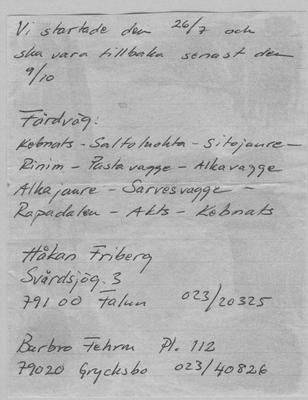 Vi startade den 26/7 och
ska vara tillbaka senast den
9/10
Färdväg:
Kebnats - Saltoluokta - Sitojaure -
Rinim - Pastavagge - Alkavagge
Alkajaure - Sarvesvagge -
Rapadalen - Akts - Kebnats
Håkan Friberg
Svärdsjög. 3
791 00 Falun 023/20325
Barbro Fehrm Pl. 112
79020 Grycksbo 023/40826